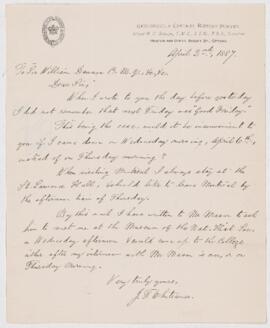 GEOLOGICAL & NATURAL HISTORY SURVEY
April 2nd, 1887.
To Sir William Dawson
Dear Sir,
When I wrote to you the day before yesterday
I did not remember that next Friday was "Good Friday."
This being the case would it be inconvenient to
you if I came down on Wednesday morning, April 6th,
instead of on Thursday morning?
When visiting Montreal I always stay at the
St. Lawrence Hall, & should like to leave Montreal by the
afternoon train of Thursday.
By this mail I have written to Mr. Mason to ask
him to meet me at the Museum of the Nat. Hist. Soc.
on Wednesday afternoon & would come up to the College
either after my interview with Mr. Mason is over, or on
Thursday morning.
Very truly yours,
J. F. Whiteaves